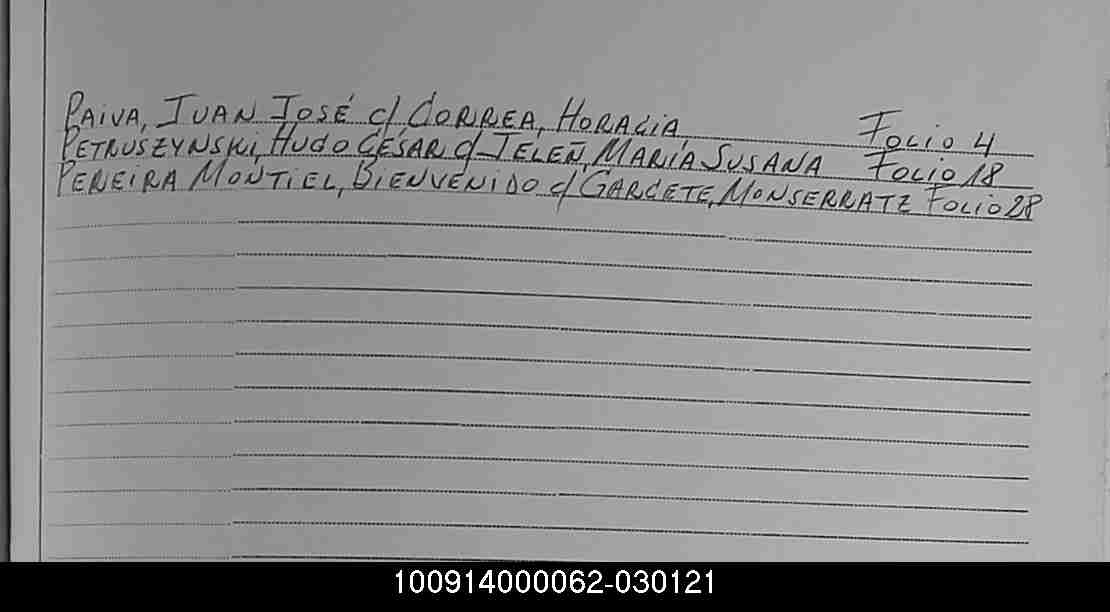 PAIVA, JUAN JOSÉ c/ CORREA, HORACIA Folio 4
PETRUSZYNSKI, HUGO CÉSAR c/ JELEÑ, MARÍA SUSANA Folio 18
PEREIRA MONTIEL, BIENVENIDO c/ GARCETE, MONSERRATE Folio 28
100914000062-030121